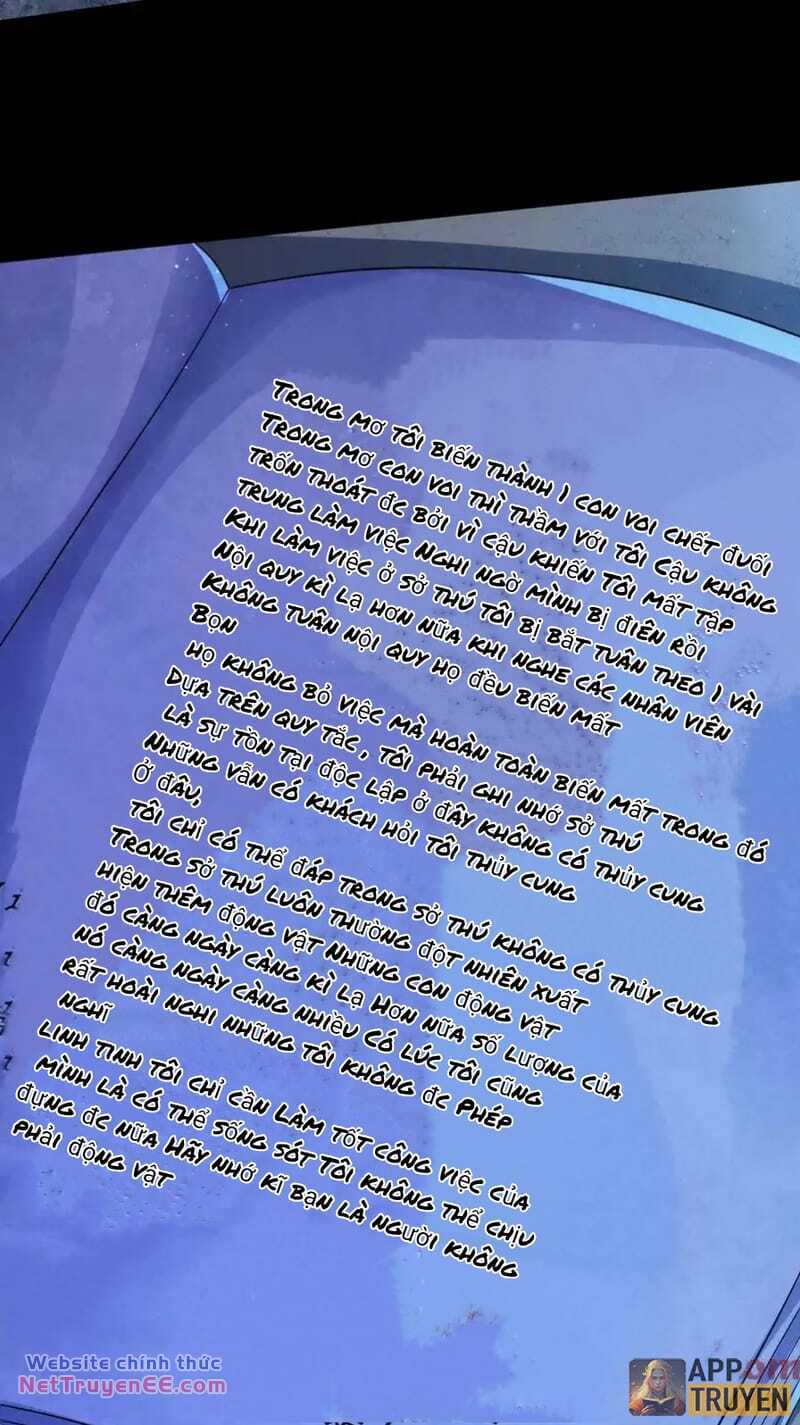 Trong mơ tôi biến thành 1 con voi chết đuối
Trong mơ con voi thì thầm với tôi cậu không
trốn thoát đc bởi vì cậu khiến tôi mất tập
trung làm việc nghi ngờ mình bị điên rồi
Khi làm việc ở sở thú tôi bị bắt tuân theo 1 vài
nội quy kì lạ hơn nữa khi nghe các nhân viên
không tuân nội quy họ đều biến mất
Bọn
họ không bỏ việc mà hoàn toàn biến mất trong đó
Dựa trên quy tắc, tôi phải ghi nhớ sở thú
là sự tồn tại độc lập ở đây không có thủy cung
Những vẫn có khách hỏi tôi thủy cung
ở đâu,
Tôi chỉ có thể đáp trong sở thú không có thủy cung
Trong sở thú luôn thường đột nhiên xuất
hiện thêm động vật Những con động vật
đó càng ngày càng kì lạ hơn nữa số lượng của
nó càng ngày càng nhiều có lúc tôi cũng
rất hoài nghi những tôi không đc phép
nghĩ
linh tinh tôi chỉ cần làm tốt công việc của
mình là có thể sống sót tôi không thể chịu
đựng đc nữa Hãy nhớ kĩ bạn là người không
phải động vật
Website chính thức
NetTruyenEE.com
APP
TRUYEN